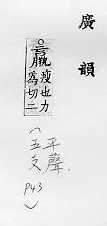 廣韻
○羸瘦也力
為切二
(平聲.
五支
P43)